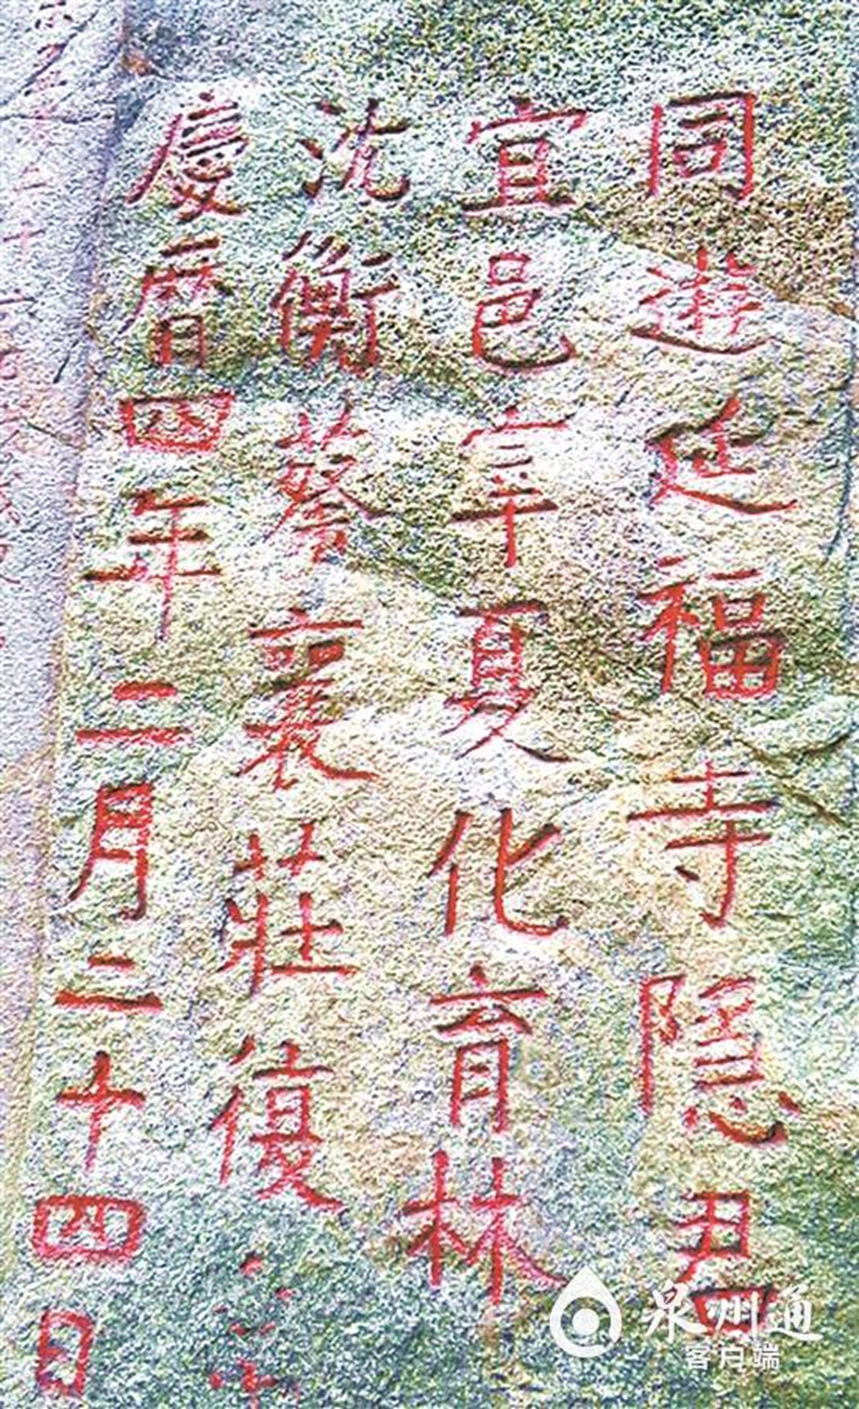 同遊延福寺隐君
宜邑宰夏化育林
沈衡蔡襄莊復
慶曆四年二月二十四日
泉州通
客户端